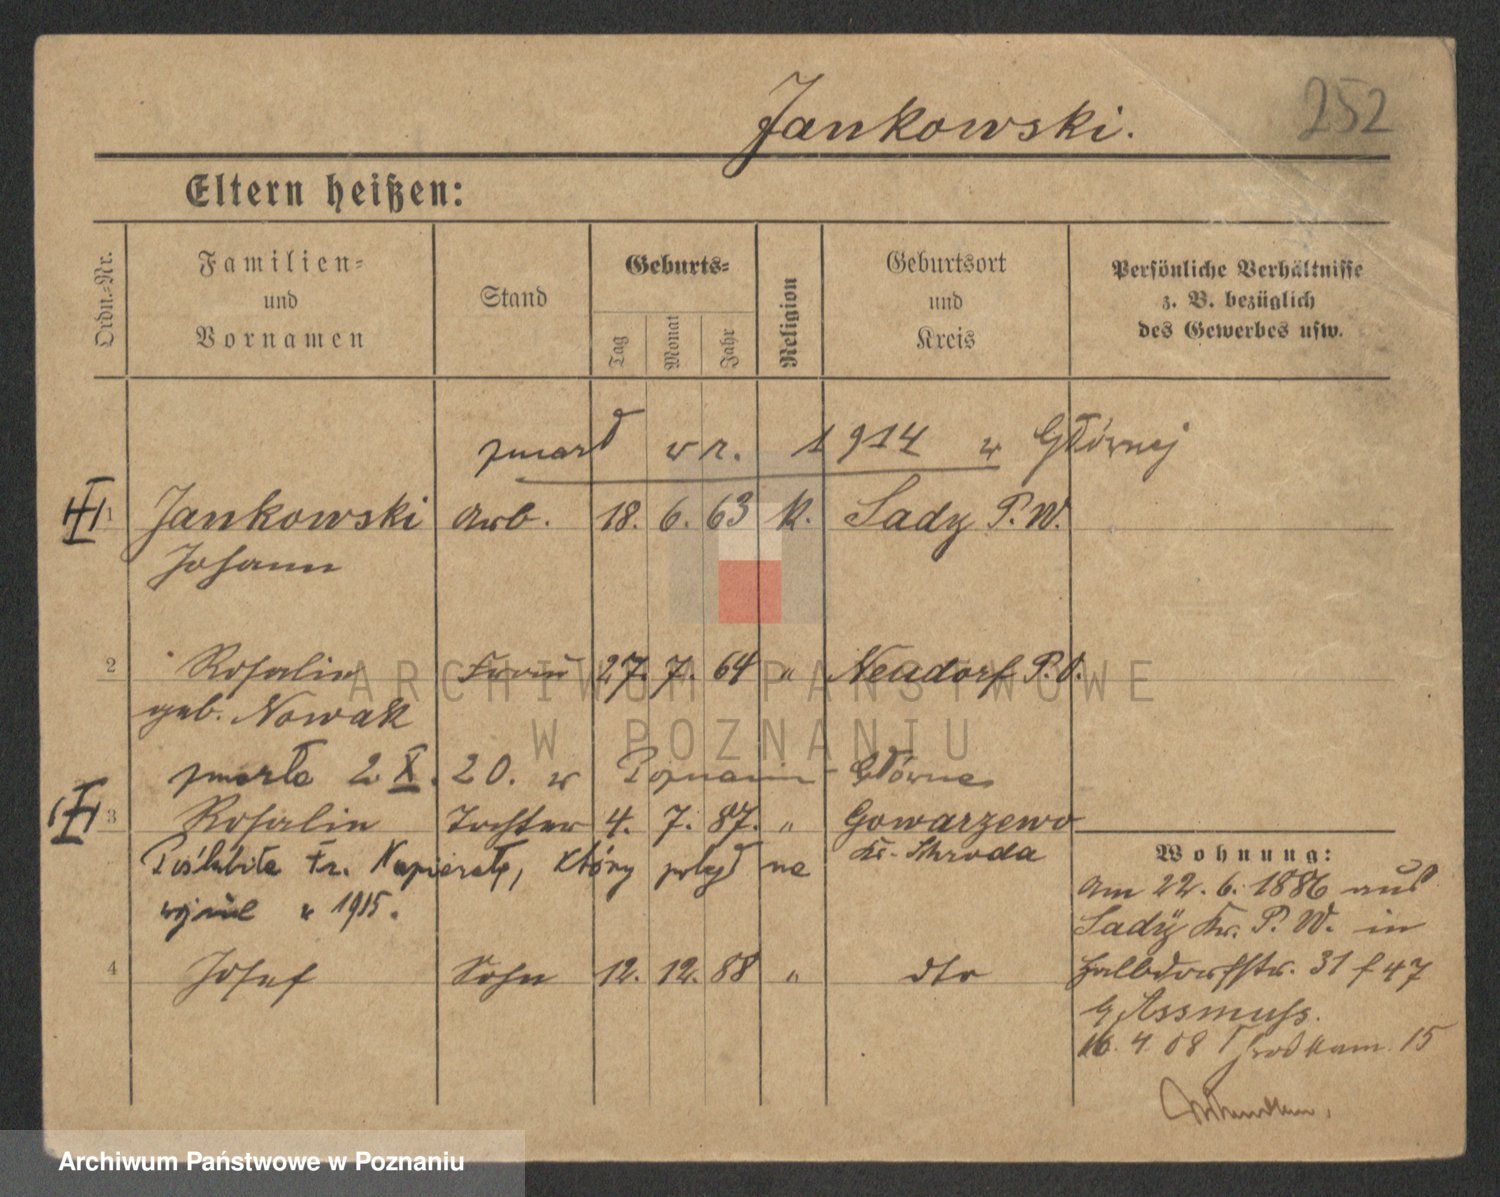 252
Jankowski.
Eltern heißen:
Ordn.-Nr.
Familien-
und
Vornamen
Stand
Geburts-
Tag
Monat
Jahr
Religion
Geburtsort
und
Kreis
Persönliche Verhältnisse
z. B. bezüglich
des Gewerbes usw.
zmarł w r. 1914 w Głównej
1 Jankowski Arb. 18. 6. 63 k. Sady P. W.
Johann
2 Rosalie Frau 27. 7. 64 " Neudorf P. O.
geb. Nowak
zmarła 2 X. 20. w Poznaniu - Główna
3 Rosalie Tochter 4. 7. 87. " Gowarzewo
Kr. Schroda
Poślubiła Fr. Napierałę, który poległ na
wojnie w 1915.
4 Josef Sohn 12. 12. 88 " dto
Wohnung:
Am 22. 6. 1886 aus
Sady Kr. P. W. in
Halbdorfstr. 31 f 47
Assmuss.
16. 4. 08 15
ARCHIWUM PAŃSTWOWE
W POZNANIU
Archiwum Państwowe w Poznaniu